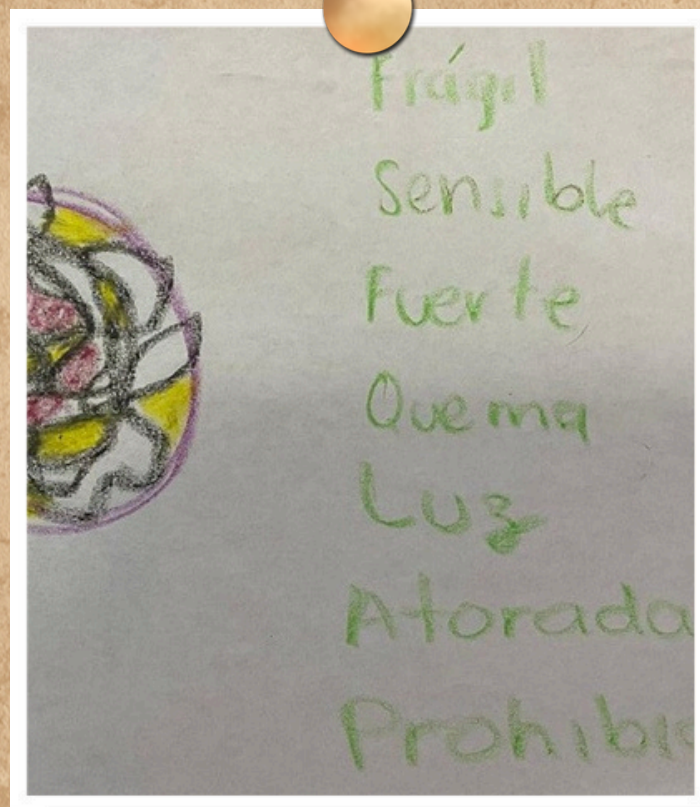 Frágil
Sensible
Fuerte
Quema
Luz
Atorada